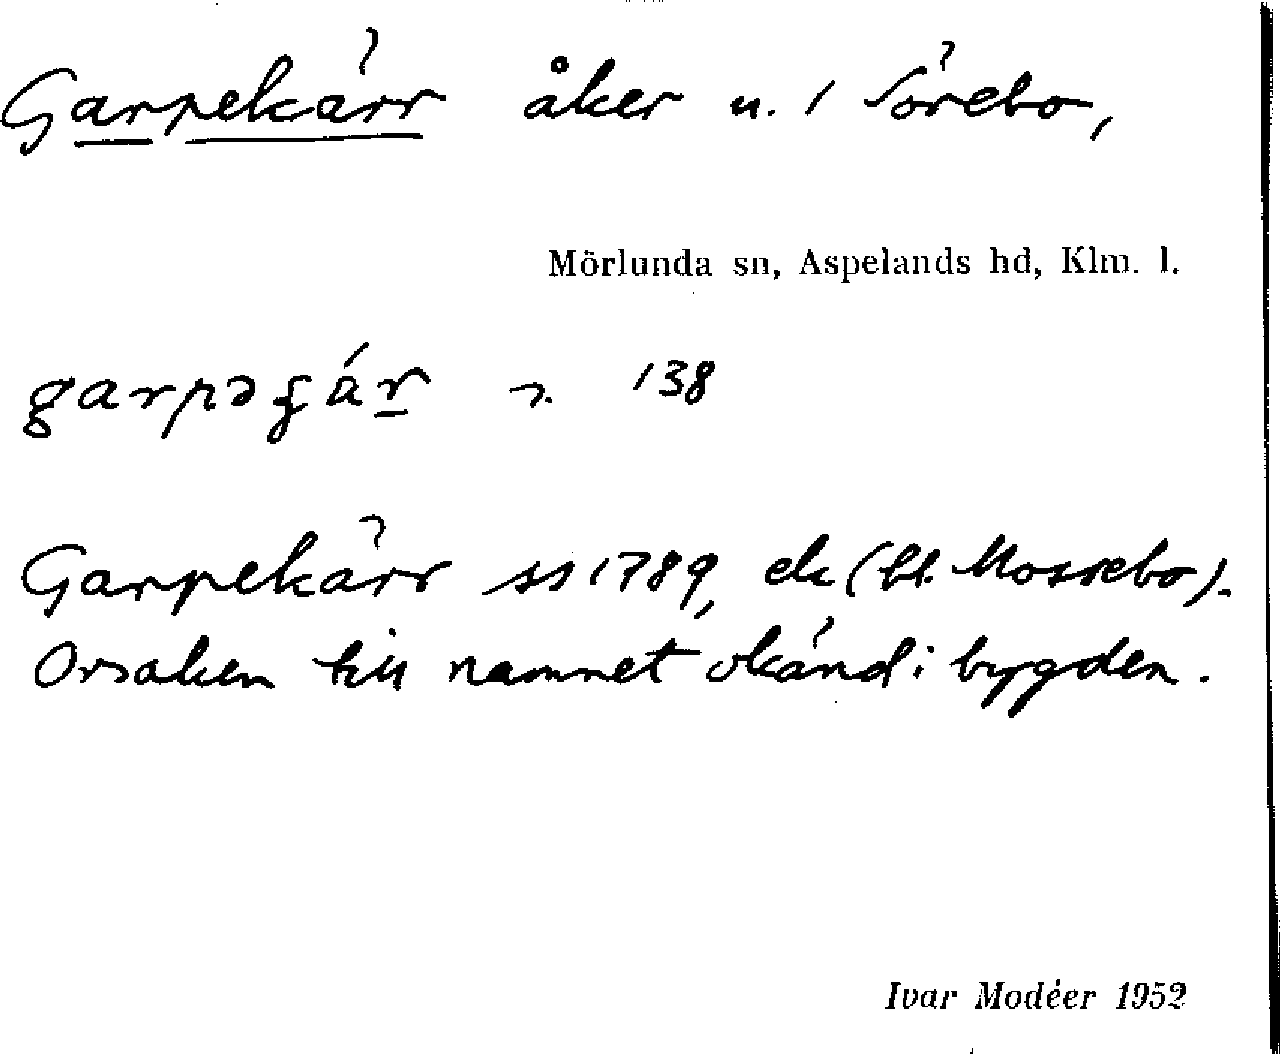 Garpekärr åker n. 1 Sörebo,
Mörlunda sn, Aspelands hd, Klm. l.
garpəʝár n. 138
Garpekärr ss 1789, ek (bl. Mossebo).
Orsaken till namnet okänd i bygden.
Ivar Modéer 1952